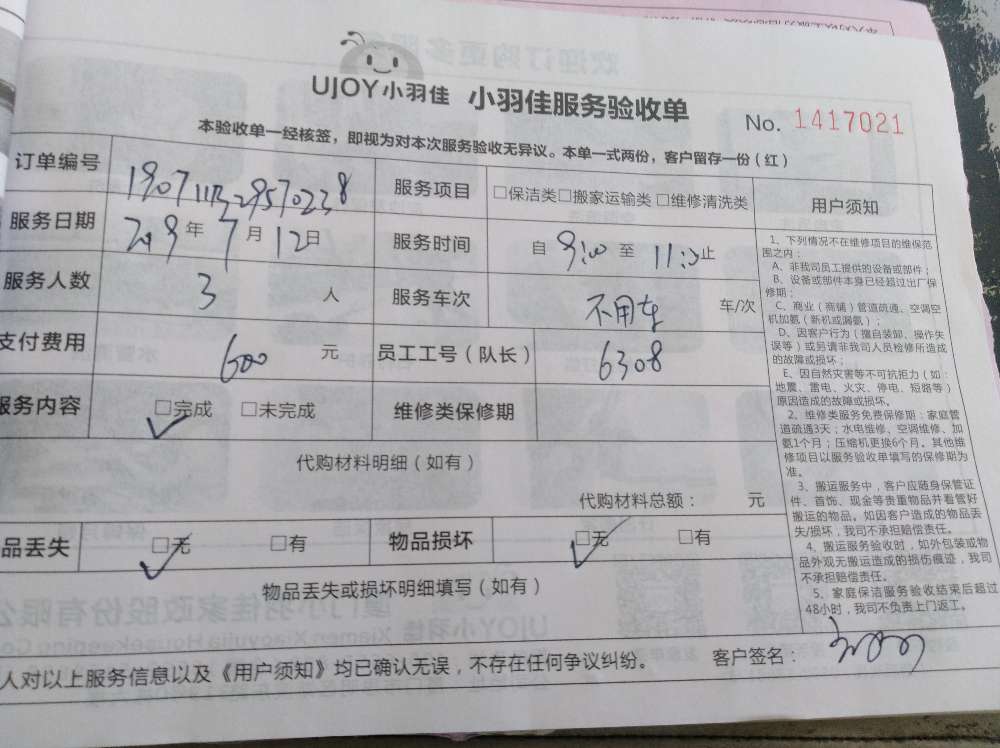 UJOY小羽佳 小羽佳服务验收单 No. 1417021
本验收单一经核签，即视为对本次服务验收无异议。本单一式两份，客户留存一份（红）
订单编号 服务项目 □保洁类□搬家运输类 □维修清洗类
服务日期 2019年7月12日 服务时间 自 9:00 至 11:00 止
服务人数 3 人 服务车次 不用车 车/次
支付费用 600 元 员工工号（队长） 6308
服务内容 □完成 □未完成 维修类保修期
代购材料明细（如有）
代购材料总额： 元
品丢失 □无 □有 物品损坏 □无 □有
物品丢失或损坏明细填写（如有）
人对以上服务信息以及《用户须知》均已确认无误，不存在任何争议纠纷。 客户签名：
用户须知
1、下列情况不在维修项目的维保范
围之内：
A、非我司员工提供的设备或部件；
B、设备或部件本身已经超过出厂保
修期；
C、商业（商铺）管道疏通、空调空
机加氨（新机或漏氨）；
D、因客户行为（擅自装卸、操作失
误等）或另请非我司人员检修所造成
的故障或损坏；
E、因自然灾害等不可抗拒力（如：
地震、雷电、火灾、停电、短路等）
原因造成的故障或损坏。
2、维修类服务免费保修期：家庭管
道疏通3天；水电维修、空调维修、加
氨1个月；压缩机更换6个月。其他维
修项目以服务验收单填写的保修期为
准。
3、搬运服务中，客户应随身保管证
件、首饰、现金等贵重物品并看管好
搬运的物品。如因客户造成的物品丢
失/损坏，我司不承担赔偿责任。
4、搬运服务验收时，如外包装或物
品外观无搬运造成的损伤痕迹，我司
不承担赔偿责任。
5、家庭保洁服务验收结束后超过
48小时，我司不负责上门返工。